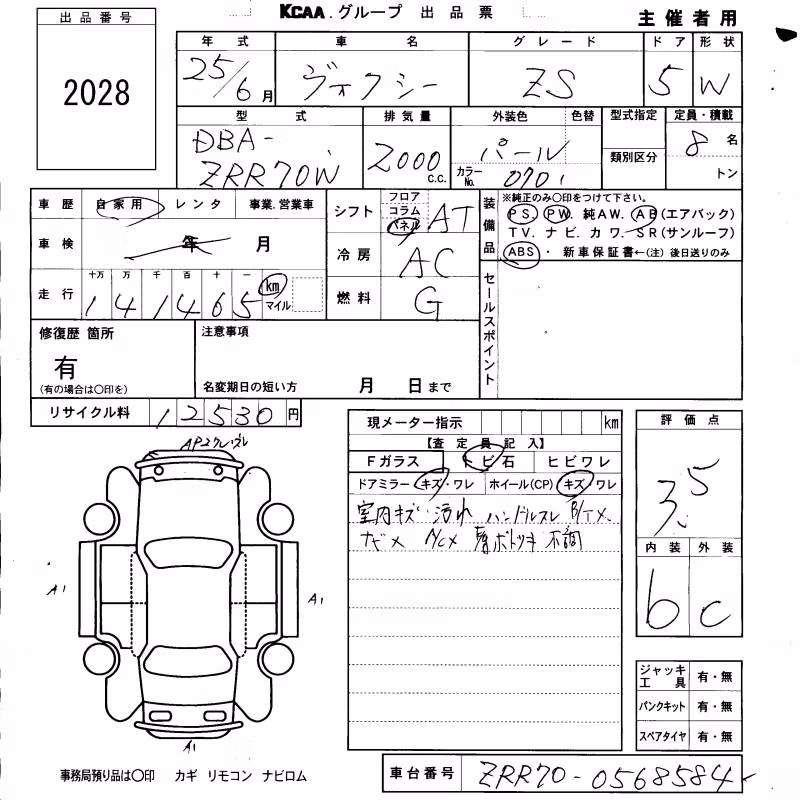 KCAA.グループ 出品票
主催者用
出品番号
2028
年式 車名 グレード ドア 形状
25/6月 ヴォクシー ZS 5 W
型式 排気量 外装色 色替 型式指定 定員・積載
DBA-
ZRR70W
2000 c.c.
パール
カラーNo. 070
類別区分
8名
トン
車歴 自家用 レンタ 事業.営業車
車検 年 月
走行 十万 万 千 百 十 一
141465 km マイル
シフト フロア コラム パネル AT
冷房 AC
燃料 G
装備品
※純正のみ〇印をつけて下さい。
PS. PW. 純AW. AB(エアバック)
TV. ナビ. カワ. SR(サンルーフ)
ABS ・ 新車保証書←(注) 後日送りのみ
セールスポイント
修復歴 箇所
有
(有の場合は〇印を)
注意事項
名変期日の短い方 月 日まで
リサイクル料 12530円
現メーター指示 km
【査定員記入】
Fガラス トビ石 ヒビワレ
ドアミラー キズ・ワレ ホイール(CP) キズ/ワレ
室内キズ・汚れ ハンドルスレ B/T×
ナビ× A/C× 不調
評価点
3.5
内装 外装
b C
A1
A1
A1
ジャッキ工具 有・無
パンクキット 有・無
スペアタイヤ 有・無
事務局預り品は〇印 カギ リモコン ナビロム
車台番号 ZRR70-0568584